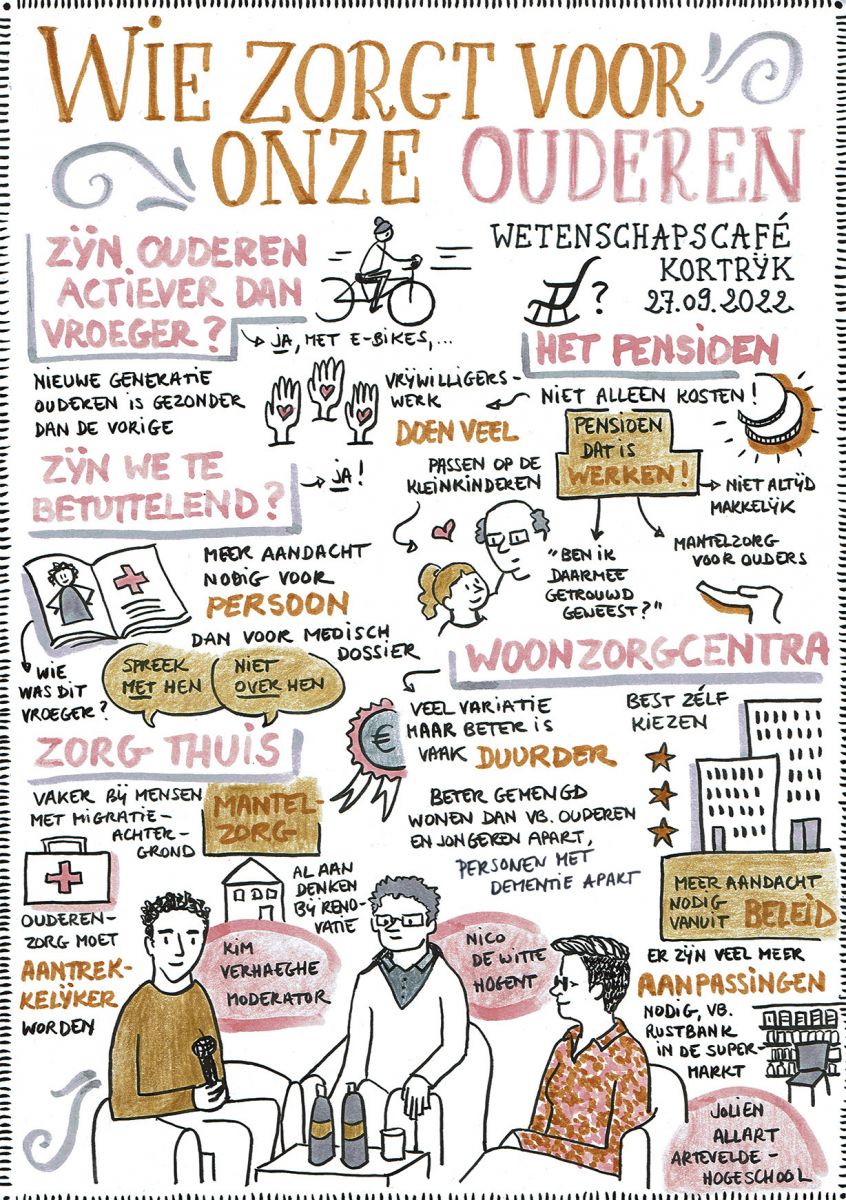 WIE ZORGT VOOR
ONZE OUDEREN
WETENSCHAPSCAFÉ
KORTRIJK
27.09.2022
ZIJN OUDEREN
ACTIEVER DAN
VROEGER?
JA, MET E-BIKES,...
NIEUWE GENERATIE
OUDEREN IS GEZONDER
DAN DE VORIGE
VRIJWILLIGERS-
WERK
DOEN VEEL
PASSEN OP DE
KLEINKINDEREN
?
HET PENSIOEN
NIET ALLEEN KOSTEN!
PENSIOEN
DAT IS
WERKEN!
NIET ALTIJD
MAKKELIJK
"BEN IK
DAARMEE
GETROUWD
GEWEEST?"
MANTELZORG
VOOR OUDERS
ZIJN WE TE
BETUTTELEND?
JA!
MEER AANDACHT
NODIG VOOR
PERSOON
DAN VOOR MEDISCH
DOSSIER
WIE
WAS DIT
VROEGER?
SPREEK
MET HEN
NIET
OVER HEN
WOONZORGCENTRA
VEEL VARIATIE
MAAR BETER IS
VAAK DUURDER
€
BEST ZÉLF
KIEZEN
BETER GEMENGD
WONEN DAN VB. OUDEREN
EN JONGEREN APART,
PERSONEN MET
DEMENTIE APART
MEER AANDACHT
NODIG
VANUIT BELEID
ER ZIJN VEEL MEER
AANPASSINGEN
NODIG, VB.
RUSTBANK
IN DE SUPER-
MARKT
ZORG THUIS
VAKER BIJ MENSEN
MET MIGRATIE-
ACHTER-
GROND
MANTEL-
ZORG
AL AAN
DENKEN
BIJ RENO-
VATIE
OUDEREN-
ZORG MOET
AANTREK-
KELIJKER
WORDEN
KIM
VERHAEGHE
MODERATOR
NICO
DE WITTE
HOGENT
JOLIEN
ALLART
ARTEVELDE-
HOGESCHOOL